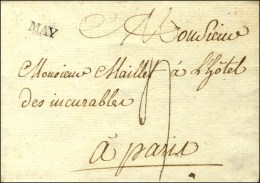 MAY
Monsieur
Monsieur Maillet à L'hôtel
des incurables
à paris